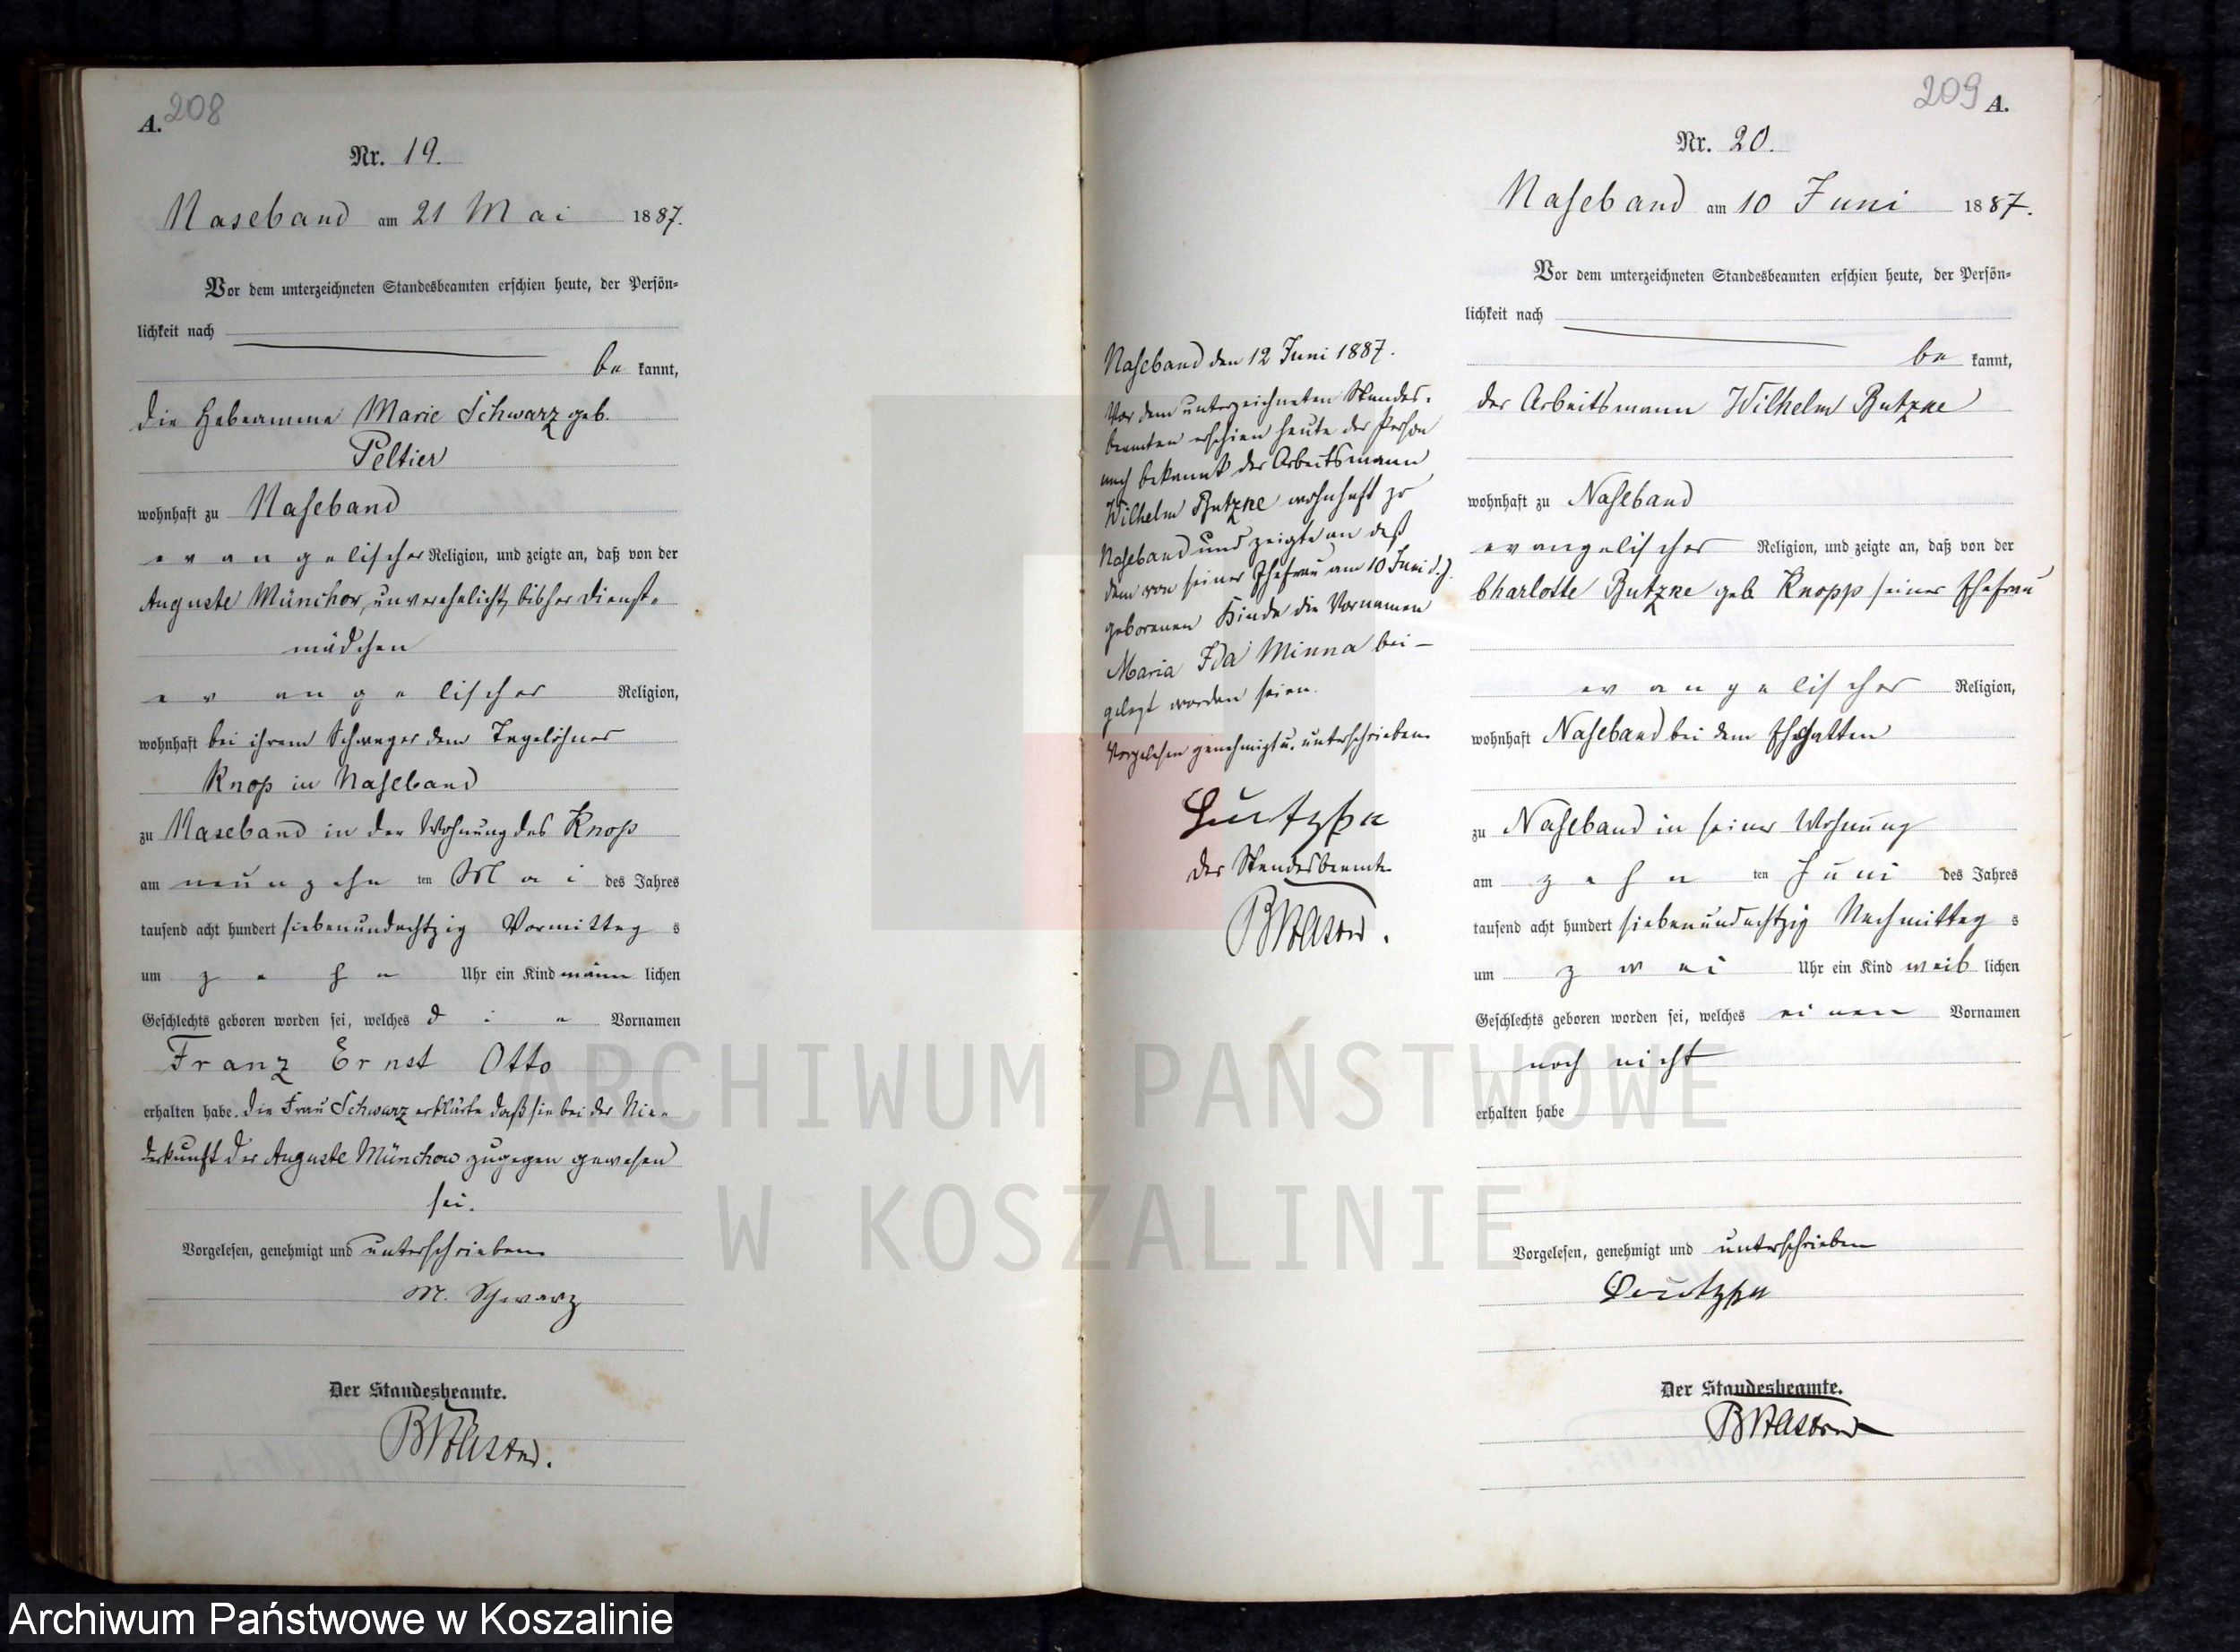 A. 208
Nr. 19.
Naseband am 21 Mai 1887.
Vor dem unterzeichneten Standesbeamten erschien heute, der Persön-
lichkeit nach
be kannt,
die Hebeamme Marie Schwarz geb.
Peltier
wohnhaft zu Naseband
evangelischer Religion, und zeigte an, daß von der
Auguste Münchow, unverehelicht, bisher Dienst-
mädchen
evangelischer Religion,
wohnhaft bei ihrem Schwager dem Tagelöhner
Knop in Naseband
zu Naseband in der Wohnung des Knop
am neunzehn ten Mai des Jahres
tausend acht hundert siebenundachtzig Vormittag s
um zehn Uhr ein Kind männ lichen
Geschlechts geboren worden sei, welches die Vornamen
Franz Ernst Otto
erhalten habe. Die Frau Schwarz erklärte daß sie bei der Nie-
derkunft der Auguste Münchow zugegen gewesen
sei.
Vorgelesen, genehmigt und unterschrieben
M. Schwarz
Der Standesbeamte.
Naseband den 12 Juni 1887.
Vor dem unterzeichneten Standes-
beamten erschien heute der Person
nach bekannt der Arbeitsmann
Wilhelm Butzke wohnhaft zu
Naseband und zeigte an daß
dem von seiner Ehefrau am 10 Juni d. J.
geborenen Kinde die Vornamen
Maria Ida Minna bei-
gelegt worden seien.
Vorgelesen genehmigt u. unterschrieben
Der Standesbeamte
209 A.
Nr. 20.
Naseband am 10 Juni 1887.
Vor dem unterzeichneten Standesbeamten erschien heute, der Persön-
lichkeit nach
be kannt,
der Arbeitsmann Wilhelm Butzke
wohnhaft zu Naseband
evangelischer Religion, und zeigte an, daß von der
Charlotte Butzke geb Knopp seiner Ehefrau
evangelischer Religion,
wohnhaft Naseband bei dem Ehegatten
zu Naseband in seiner Wohnung
am zehn ten Juni des Jahres
tausend acht hundert siebenundachtzig Nachmittag s
um zwei Uhr ein Kind weib lichen
Geschlechts geboren worden sei, welches einen Vornamen
noch nicht
erhalten habe
Vorgelesen, genehmigt und unterschrieben
Der Standesbeamte.
ARCHIWUM PAŃSTWOWE
W KOSZALINIE
Archiwum Państwowe w Koszalinie